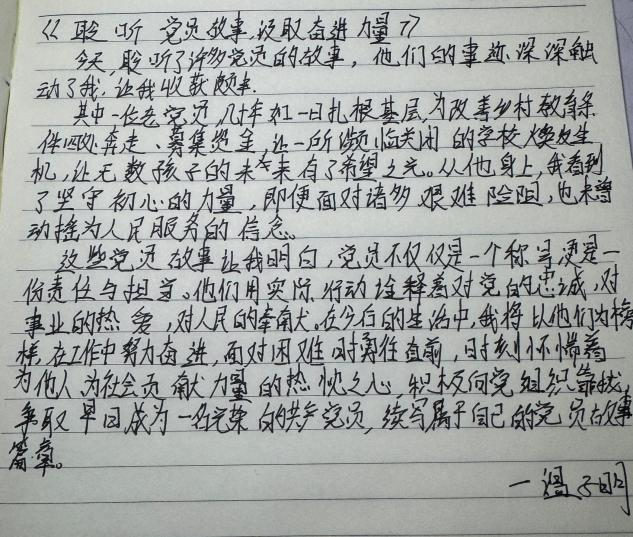 《聆听党员故事,汲取奋进力量》
今天,聆听了许多党员的故事,他们的事迹深深触
动了我,让我收获颇丰.
其中一位老党员,几十年如一日扎根基层,为改善乡村教育条
件四处奔走、募集资金,让一所濒临关闭的学校焕发生
机,让无数孩子的未来有了希望之光。从他身上,我看到
了坚守初心的力量,即便面对诸多艰难险阻,也未曾
动摇为人民服务的信念。
这些党员故事让我明白,党员不仅仅是一个称号更是一
份责任与担当。他们用实际行动诠释着对党的忠诚,对
事业的热爱,对人民的奉献。在今后的生活中,我将以他们为榜
样,在工作中努力奋进,面对困难时勇往直前,时刻怀揣着
为他人为社会贡献力量的热忱之心,积极向党组织靠拢,
争取早日成为一名光荣的共产党员,续写属于自己的党员故事
篇章。
一温子明